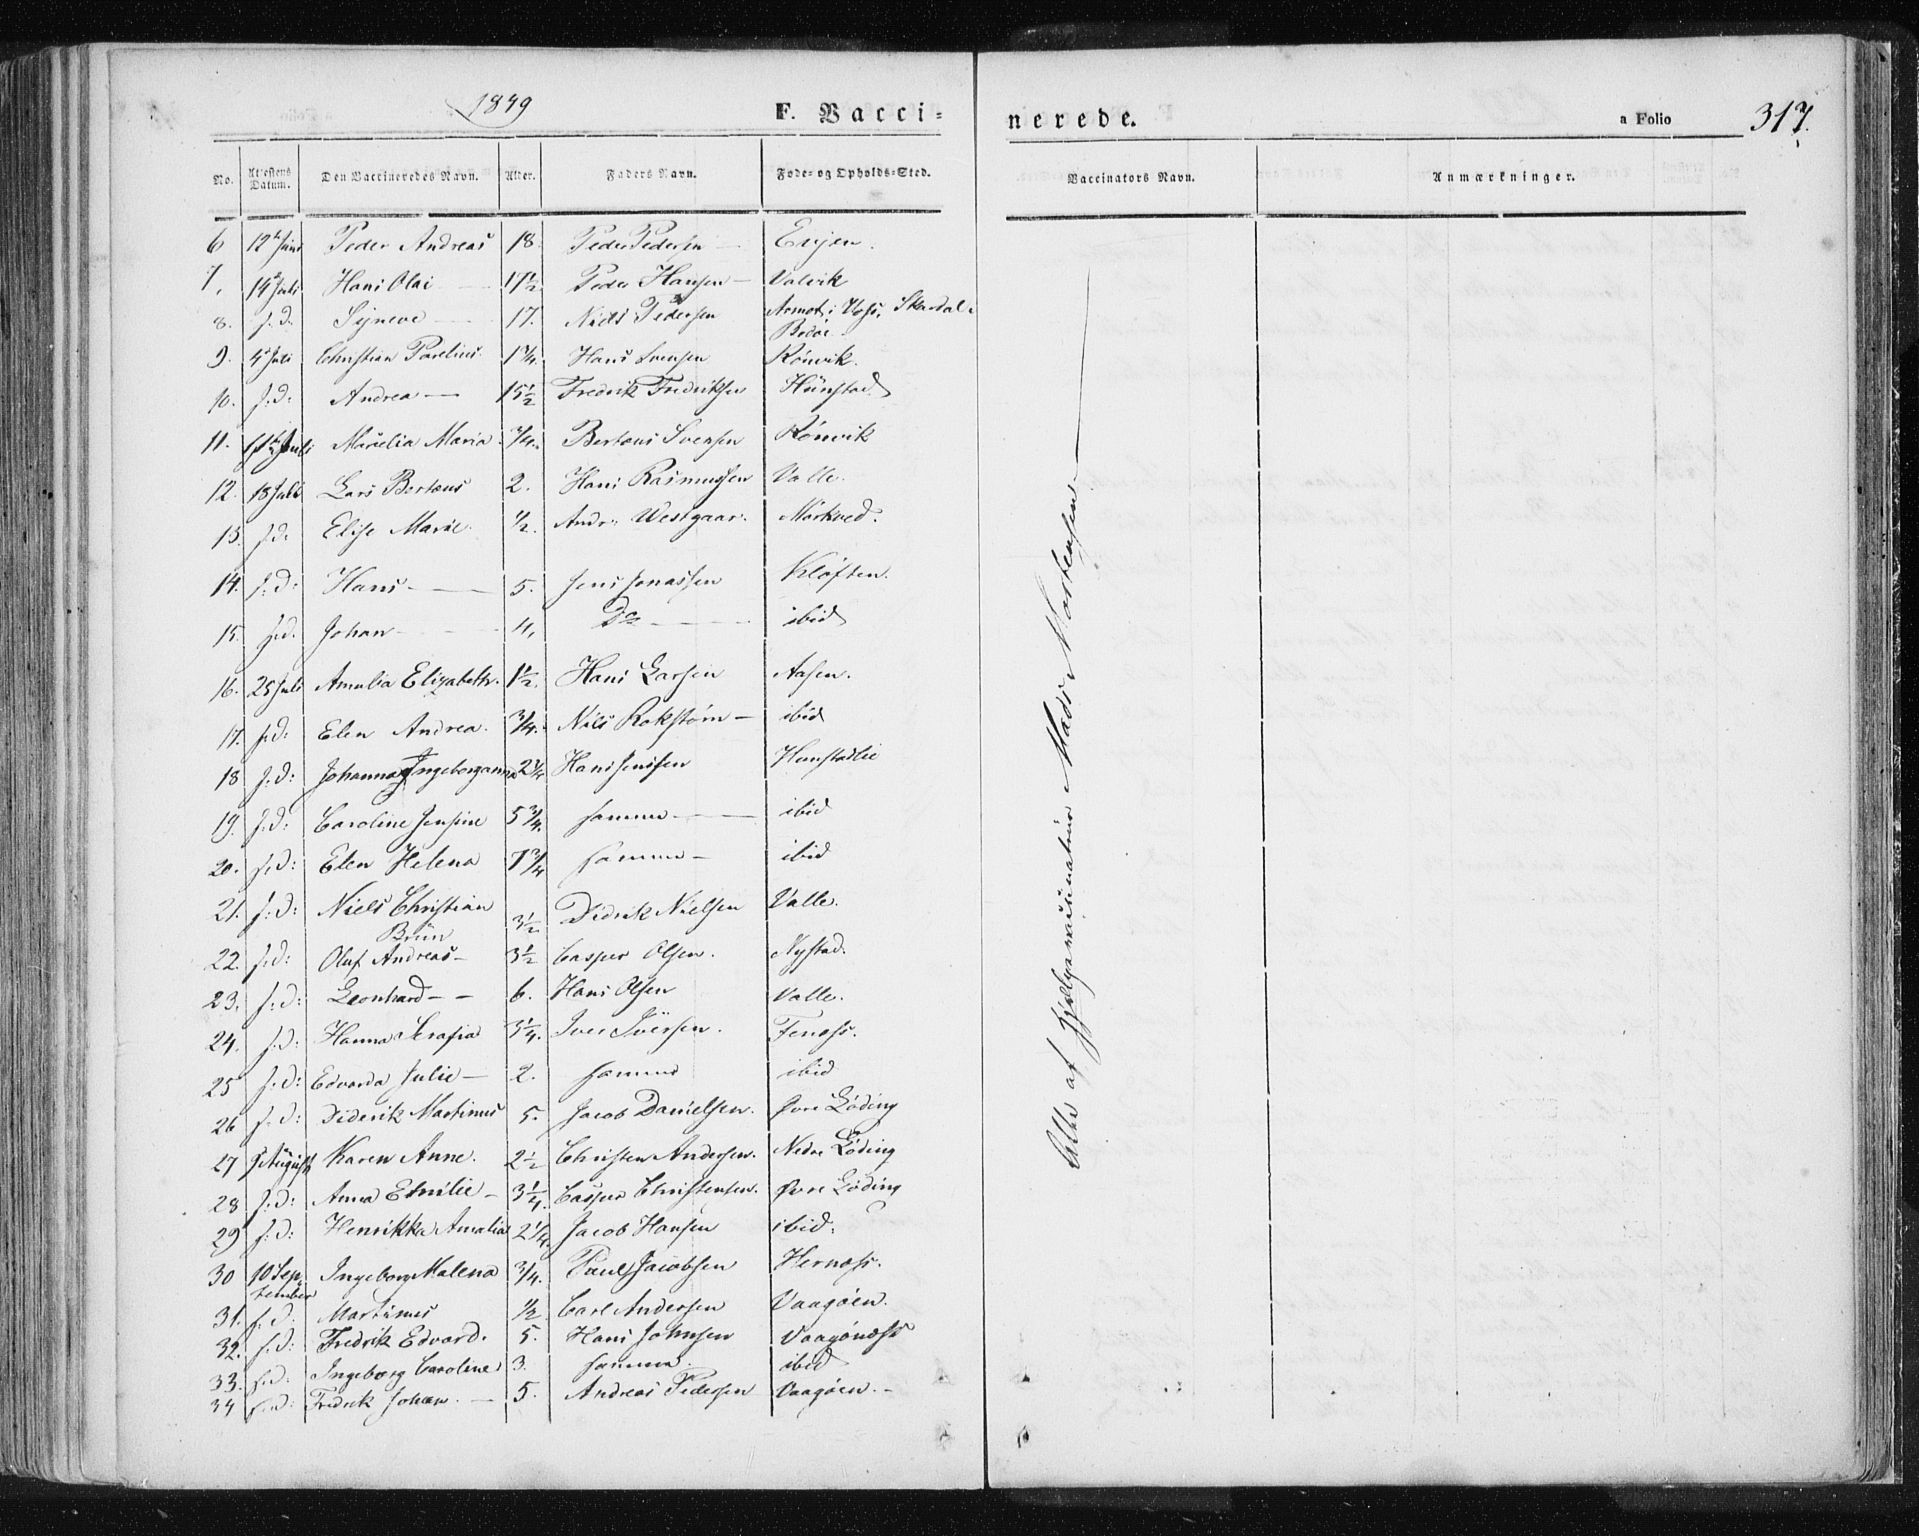 1849
F. Vacci-
nerede.
a Folio 317.
No. Attestens Datum. Den Vaccineredes Navn. Alder. Faders Navn. Føde- og Opholds-Sted.
Vaccinators Navn. Anmærkninger.
6 12te Juni Peder Andreas 18. Peder Pedersen — Enjen.
7. 14de Juli Hans Olai — 17½ Peder Hansen — Valvik
8. s. d. Syneve — 17. Niels Pedersen Armot i Voss, Skardal i
Bodøe
9. 4de Juli Christian Parelius. 1¾. Hans Svensen Rønvik.
10. s. d: Andrea — 15½ Fredrik Fredriksen Hunstad
11. Juli Marelia Maria. ¾. Bertæus Svensen Rønvik
12. 18 Juli Lars Bertæus 2. Hans Rasmussen Valle.
13. s. d. Elise Marie. ½. Andr: Westgaar. Mörkved.
14. s: d: Hans — 5. Jens Jonassen Kløften.
15. s. d. Johan — 4. Do — ibid
16. 25 Juli Amalia Elizabeth. 1½. Hans Larsen Aasen.
17. s: d: Elen Andrea. ¾. Nils Rokstøm — ibid
18 s: d: Johanna Ingeborganna 2¼ Hans Jensen Hunstadlie
19. s: d: Caroline Jensine 5¾. samme — ibid
20. s: d: Elen Helena 7¾ samme — ibid
21. s: d: Niels Christian
Brün 3½ Didrik Nielsen Valle.
22. s: d: Oluf Andreas — 3½ Casper Olsen. Nystad.
23. s: d: Leonhard — — 6. Hans Olsen Valle.
24. s: d: Hanna Serafia 3¼. Iver Iversen. Fenæss.
25 s: d: Edvarda Julie — 2. samme ibid
26 s: d: Diderik Martinus 5. Jacob Danielsen. Øvre Løding
27 August Karen Anne. 2½ Christen Andersen. Nedre Løding
28 s: d: Anna Emilie — 3¼. Casper Christensen. Øvre Løding
29 s: d: Henrikka Amalia 2¼. Jacob Hansen ibid.
30 10 Sep- Ingeborg Malena ¾. Paul Jacobsen Hernæss.
tember
31. s. d. Martinus ½ Carl Andersen Vaagøen.
32. s: d: Fredrik Edvard. 5. Hans Johnsen Vaagønæss
33. s: d: Ingeborg Caroline 3. samme. ibid
34 s: d: Fredrik Johan. — 5. Andreas Pedersen Vaagøen. —
Alle af Hjelpevaccinatør Mads Mortensen —